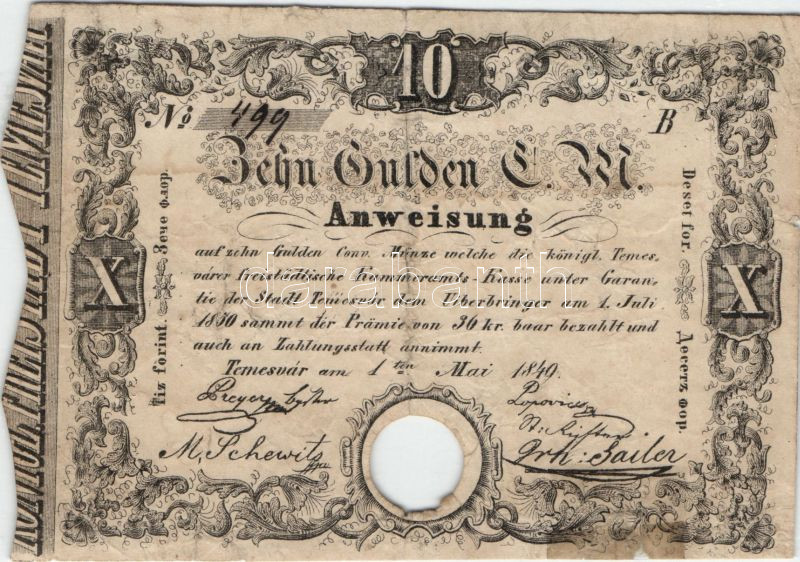 10
No 499 B
Zehn Gulden C. M.
Anweisung
auf zehn Gulden Conv. Münze welche die königl. Temes-
várer freistädtische Kammeramts-Kasse unter Garan-
tie der Stadt Temesvár dem Überbringer am 1. Juli
1850 sammt der Prämie von 36 kr. baar bezahlt und
auch an Zahlungsstatt annimmt.
Temesvár am 1ten Mai 1849.
Preyer
Popovics
M. Schewitz
Joh: Sailer
X
X
Tiz forint. Зече флор.
Deset for. Десетъ фор.
darabanth